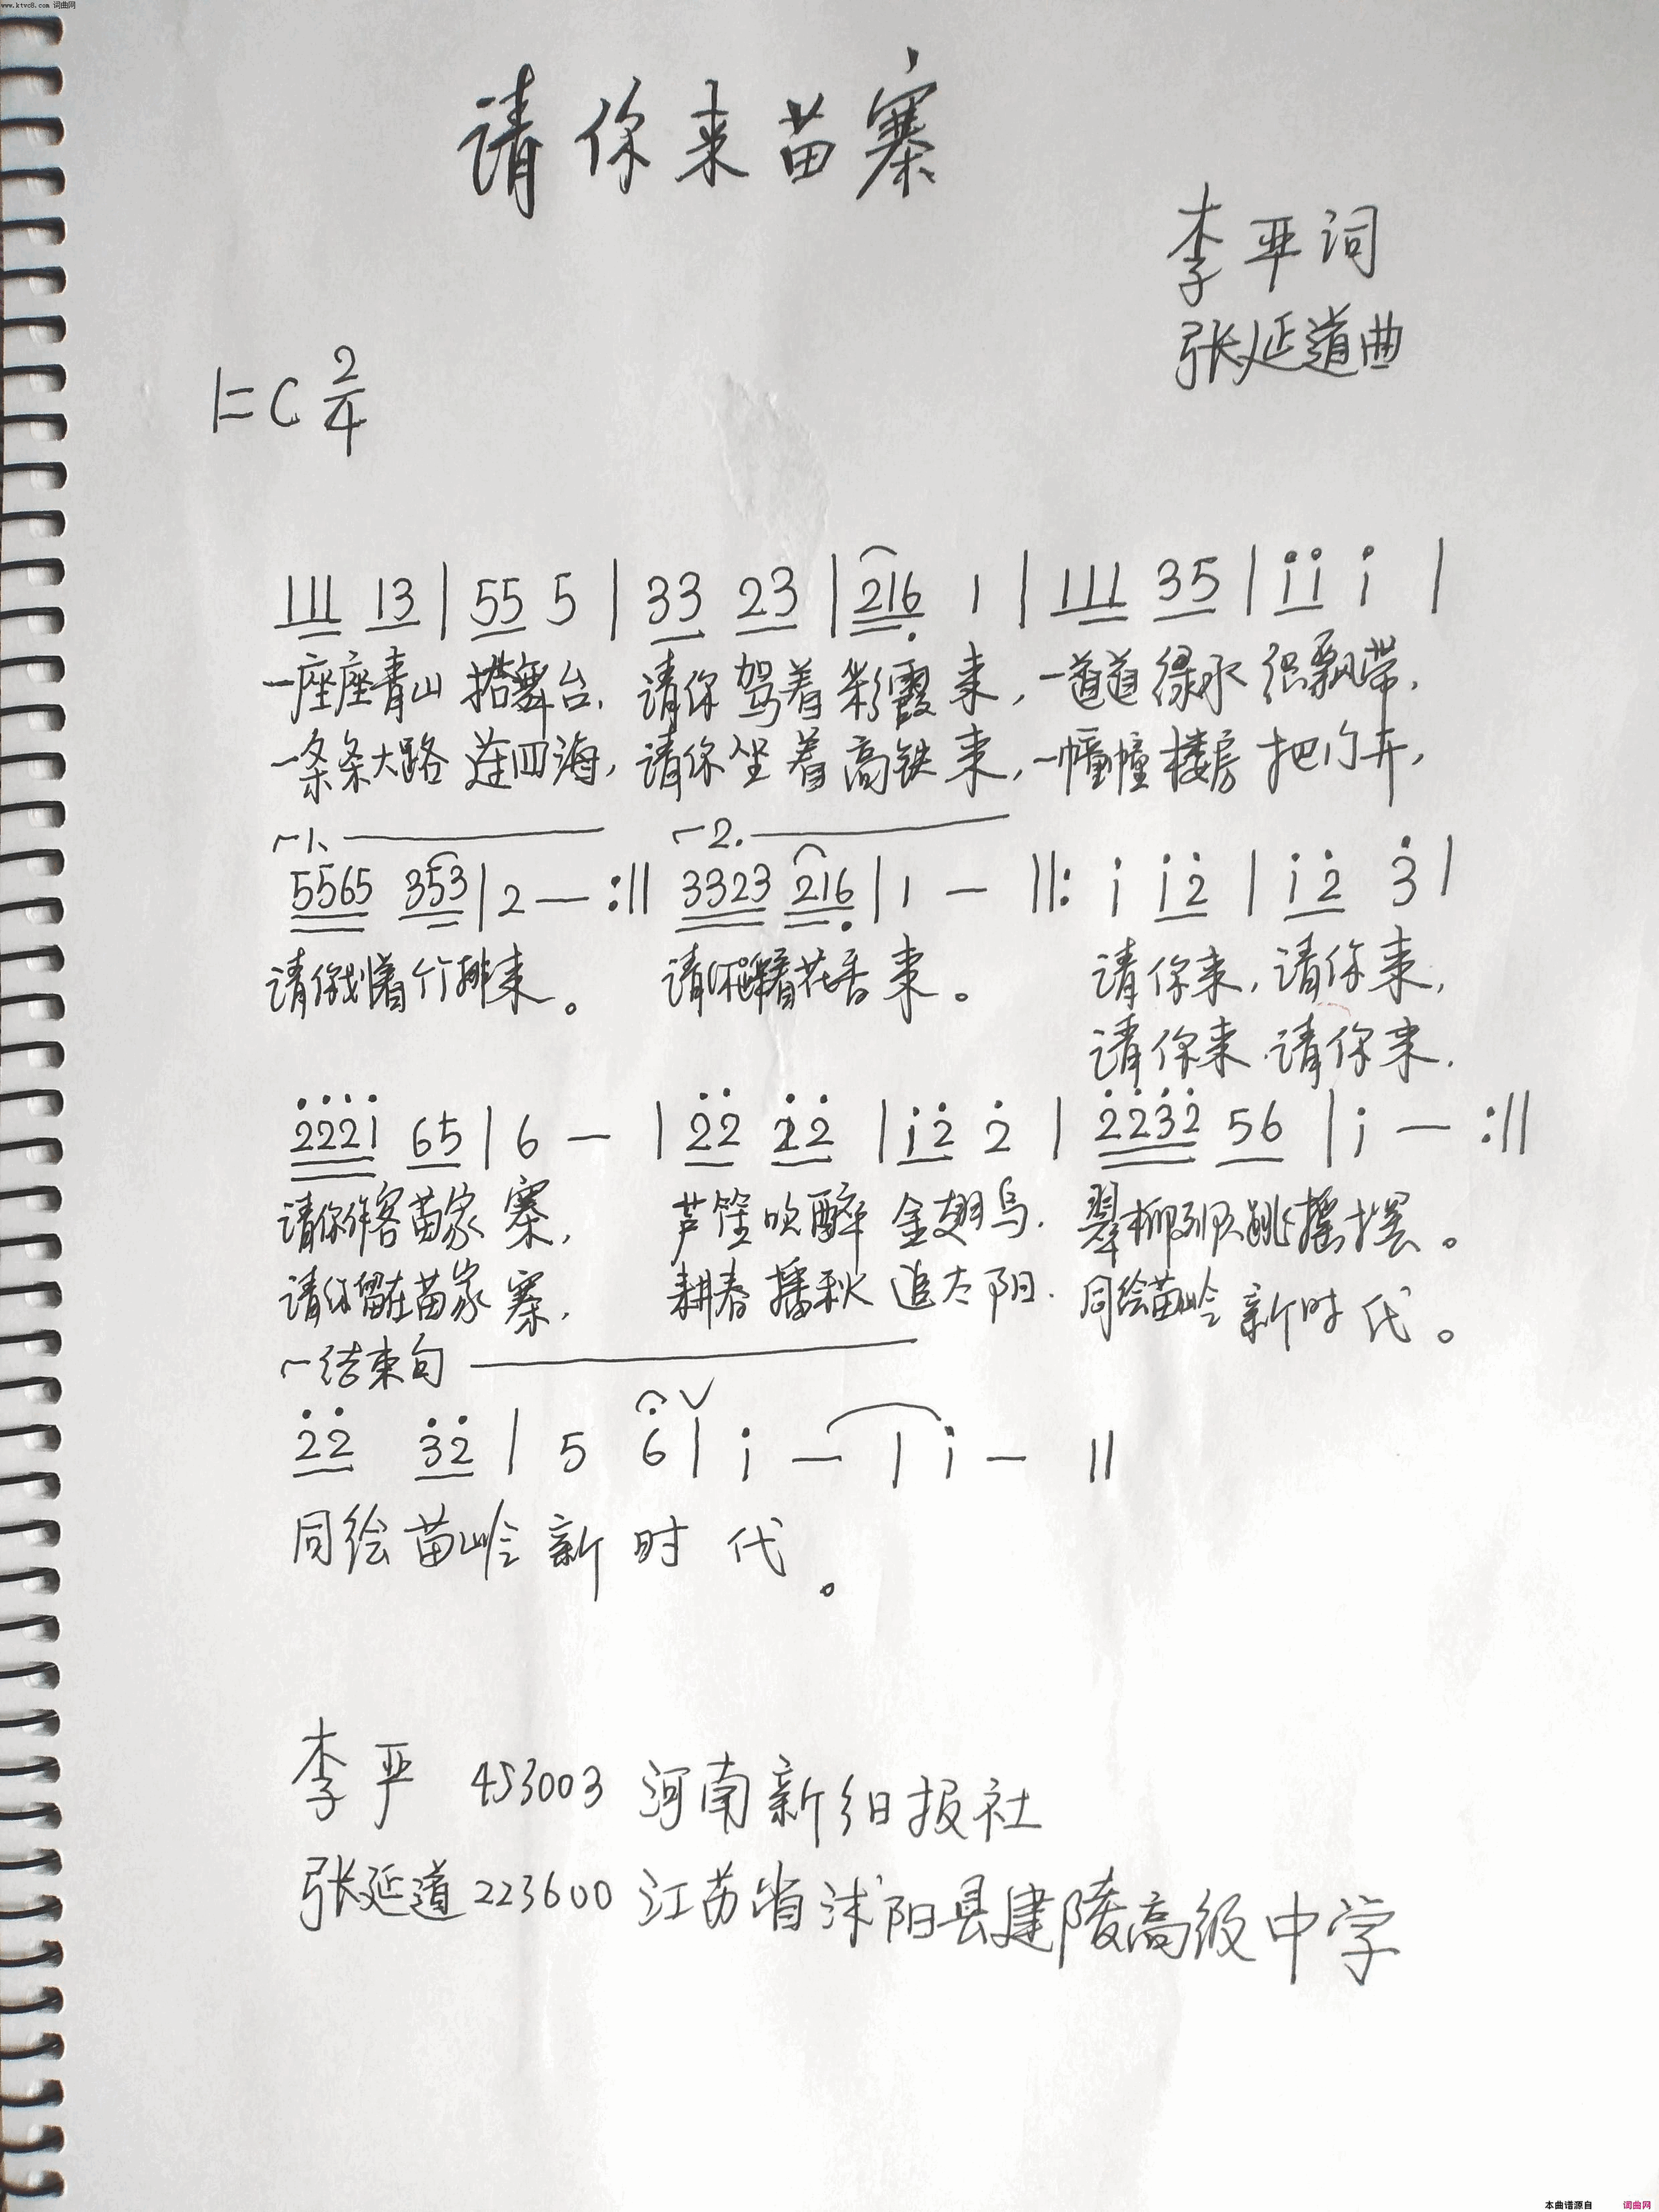 www.ktvc8.com 词曲网
请你来苗寨
李平词
张延道曲
1=C 2/4
111 13 | 55 5 | 33 23 | 216 1 | 111 35 | i i i |
一座座青山 搭舞台, 请你驾着彩霞来, 一道道绿水 织飘带,
一条条大路 连四海, 请你坐着高铁来, 一幢幢楼房 把门开,
1. 2.
5565 353 | 2 — :‖ 3323 216 | 1 — ‖: i i2 | i2 3 |
请你划着竹排来。 请你踏着花香来。 请你来, 请你来,
请你来, 请你来.
222i 65 | 6 — | 22 22 | i2 2 | 2232 56 | i — :‖
请你作客苗家寨, 芦笙吹醉金翅鸟. 翠柳列队跳摇摆。
请你留在苗家寨, 耕春播秋追太阳. 同绘苗岭新时代。
结束句
22 32 | 5 6 | i — | i — ‖
同绘苗岭新时代。
李平 453003 河南新乡日报社
张延道 223600 江苏省沭阳县建陵高级中学
本曲谱源自 词曲网